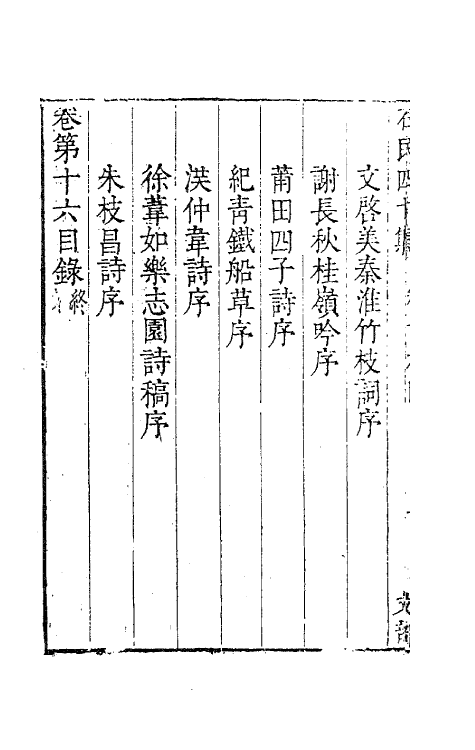 石民四十集
文啓美秦淮竹枝詞序
謝長秋桂嶺吟序
莆田四子詩序
紀青鐵船草序
洪仲韋詩序
徐葦如樂志園詩稿序
朱枝昌詩序
卷第十六目錄終